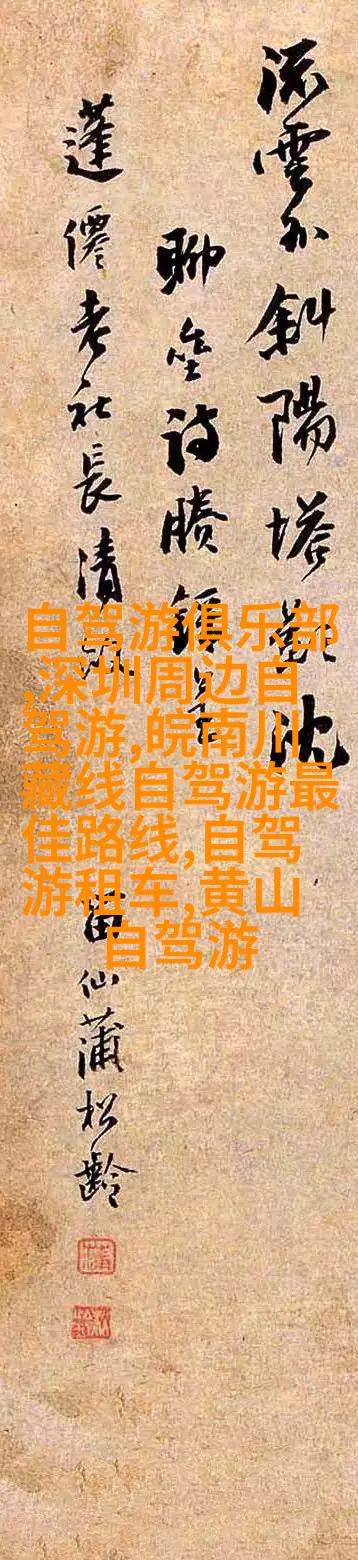 流雲外斜陽塔影沈
聊齋詩賸錄
蓬僊老社長清
留仙蒲松齡
自驾游俱乐部
,深圳周边自
驾游,皖南川
藏线自驾游最
佳路线,自驾
游租车,黄山
自驾游